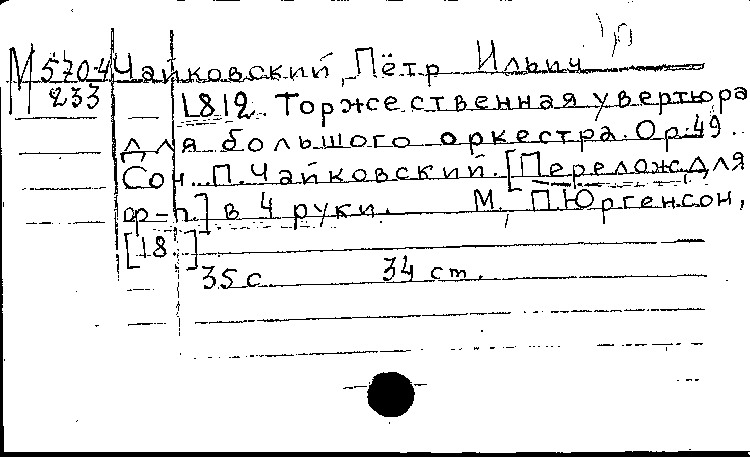 М 5704 Чайковский, Пётр Ильич
233 1812. Торжественная увертюра
для большого оркестра. Ор. 49.
Соч. П. Чайковский. [Перелож. для
ф-п.] в 4 руки. М., П. Юргенсон,
[18 ]
35 с. 34 cm.